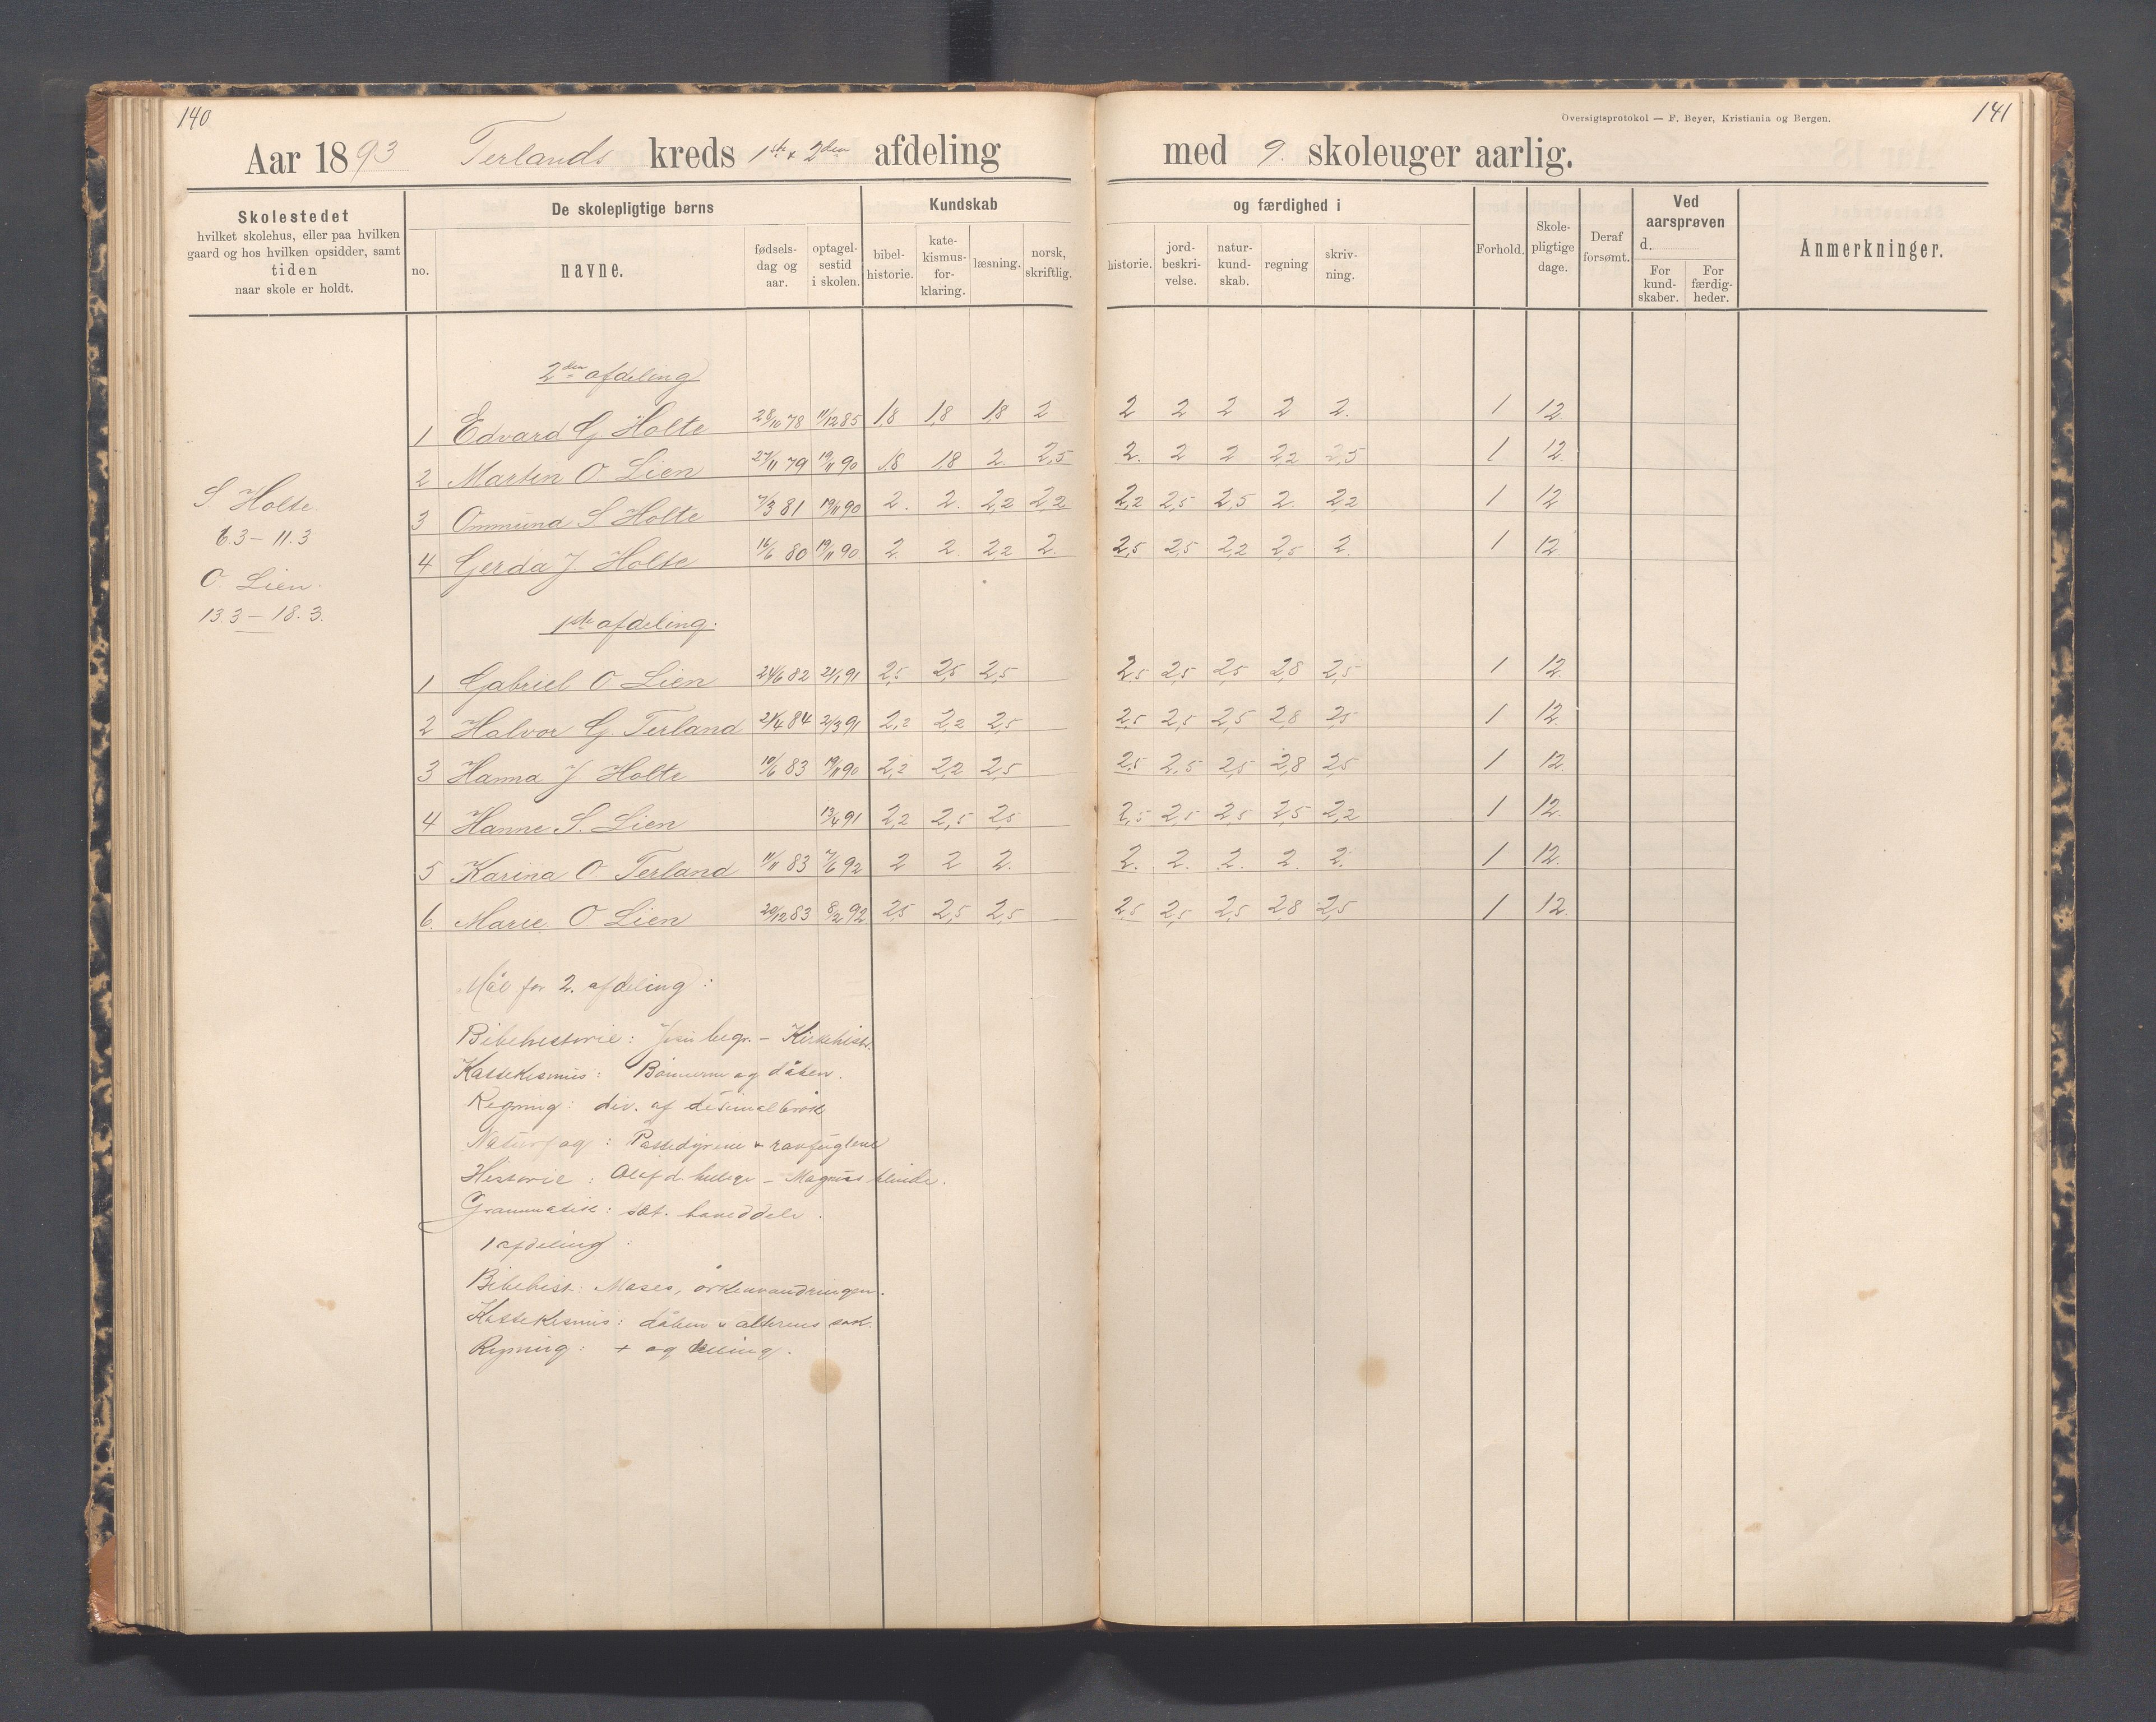 140
Aar 1893 Terlands kreds 1ste + 2den afdeling
Skolestedet
hvilket skolehus, eller paa hvilken
gaard og hos hvilken opsidder, samt
tiden
naar skole er holdt.
De skolepligtige børns
no.
navne.
fødsels-
dag og
aar.
optagel-
sestid
i skolen.
Kundskab
bibel-
historie.
kate-
kismus-
for-
klaring.
læsning.
norsk,
skriftlig.
Oversigtsprotokol — F. Beyer, Kristiania og Bergen.
141
med 9. skoleuger aarlig.
og færdighed i
historie.
jord-
beskri-
velse.
natur-
kund-
skab.
regning
skriv-
ning.
Forhold.
Skole-
pligtige
dage.
Deraf
forsømt.
Ved
aarsprøven
d.
For
kund-
skaber.
For
færdig-
heder.
Anmerkninger.
2den afdeling
1 Edvard G Holte 28/10 78 11/12 85 1,8 1,8 1,8 2 2 2 2 2 2. 1 12
2 Marten O Lien 27/11 79 19/11 90 1,8 1,8 2. 2,5 2. 2 2 2,2 2,5 1 12.
3 Ommund S Holte 7/3 81 19/11 90 2. 2. 2,2 2,2 2,2 2,5 2,5 2. 2,2 1 12
4 Gerda J. Holte 16/6 80 19/11 90 2 2. 2,2 2. 2,5 2,5 2,2 2,5 2. 1 12.
S Holte.
6.3 – 11.3
O. Lien.
13.3 – 18.3.
1ste afdeling.
1 Gabriel O Lien 24/6 82 21/1 91 2,5 2,5 2,5 2,5 2,5 2,5 2,8 2,5 1 12.
2 Halvor G Terland 21/4 84 2/3 91 2,2 2,2 2,5 2,5 2,5 2,5 2,8 2,5 1 12.
3 Hanna J. Holte 10/6 83 19/11 90 2,2 2,2 2,5 2,5 2,5 2,5 2,8 2,5 1 12.
4 Hanne S. Lien 13/4 91 2,2 2,5 2,5 2,5 2,5 2,5 2,5 2,2 1 12.
5 Karina O. Terland 11/11 83 7/6 92 2 2 2. 2. 2. 2. 2. 2. 1 12.
6. Marie O Lien 20/12 83 8/2 92 2,5 2,5 2,5 2,5 2,5 2,5 2,8 2,5 1 12.
Mål for 2. afdeling:
Bibelhistorie: Jesu begr. – Kirkehist.
Kattekismus: Bønnerne og dåben.
Regning: div. af desimalbrøk
Naturfag: Pattedyrene & rovfuglene
Historie: Olaf d. hellige – Magnus blinde.
Grammatik: sæt. hoveddele.
1 afdeling:
Bibelhist: Moses, ørkenvandringen.
Kattekismus: dåben & alterens sak.
Regning: + og deling.